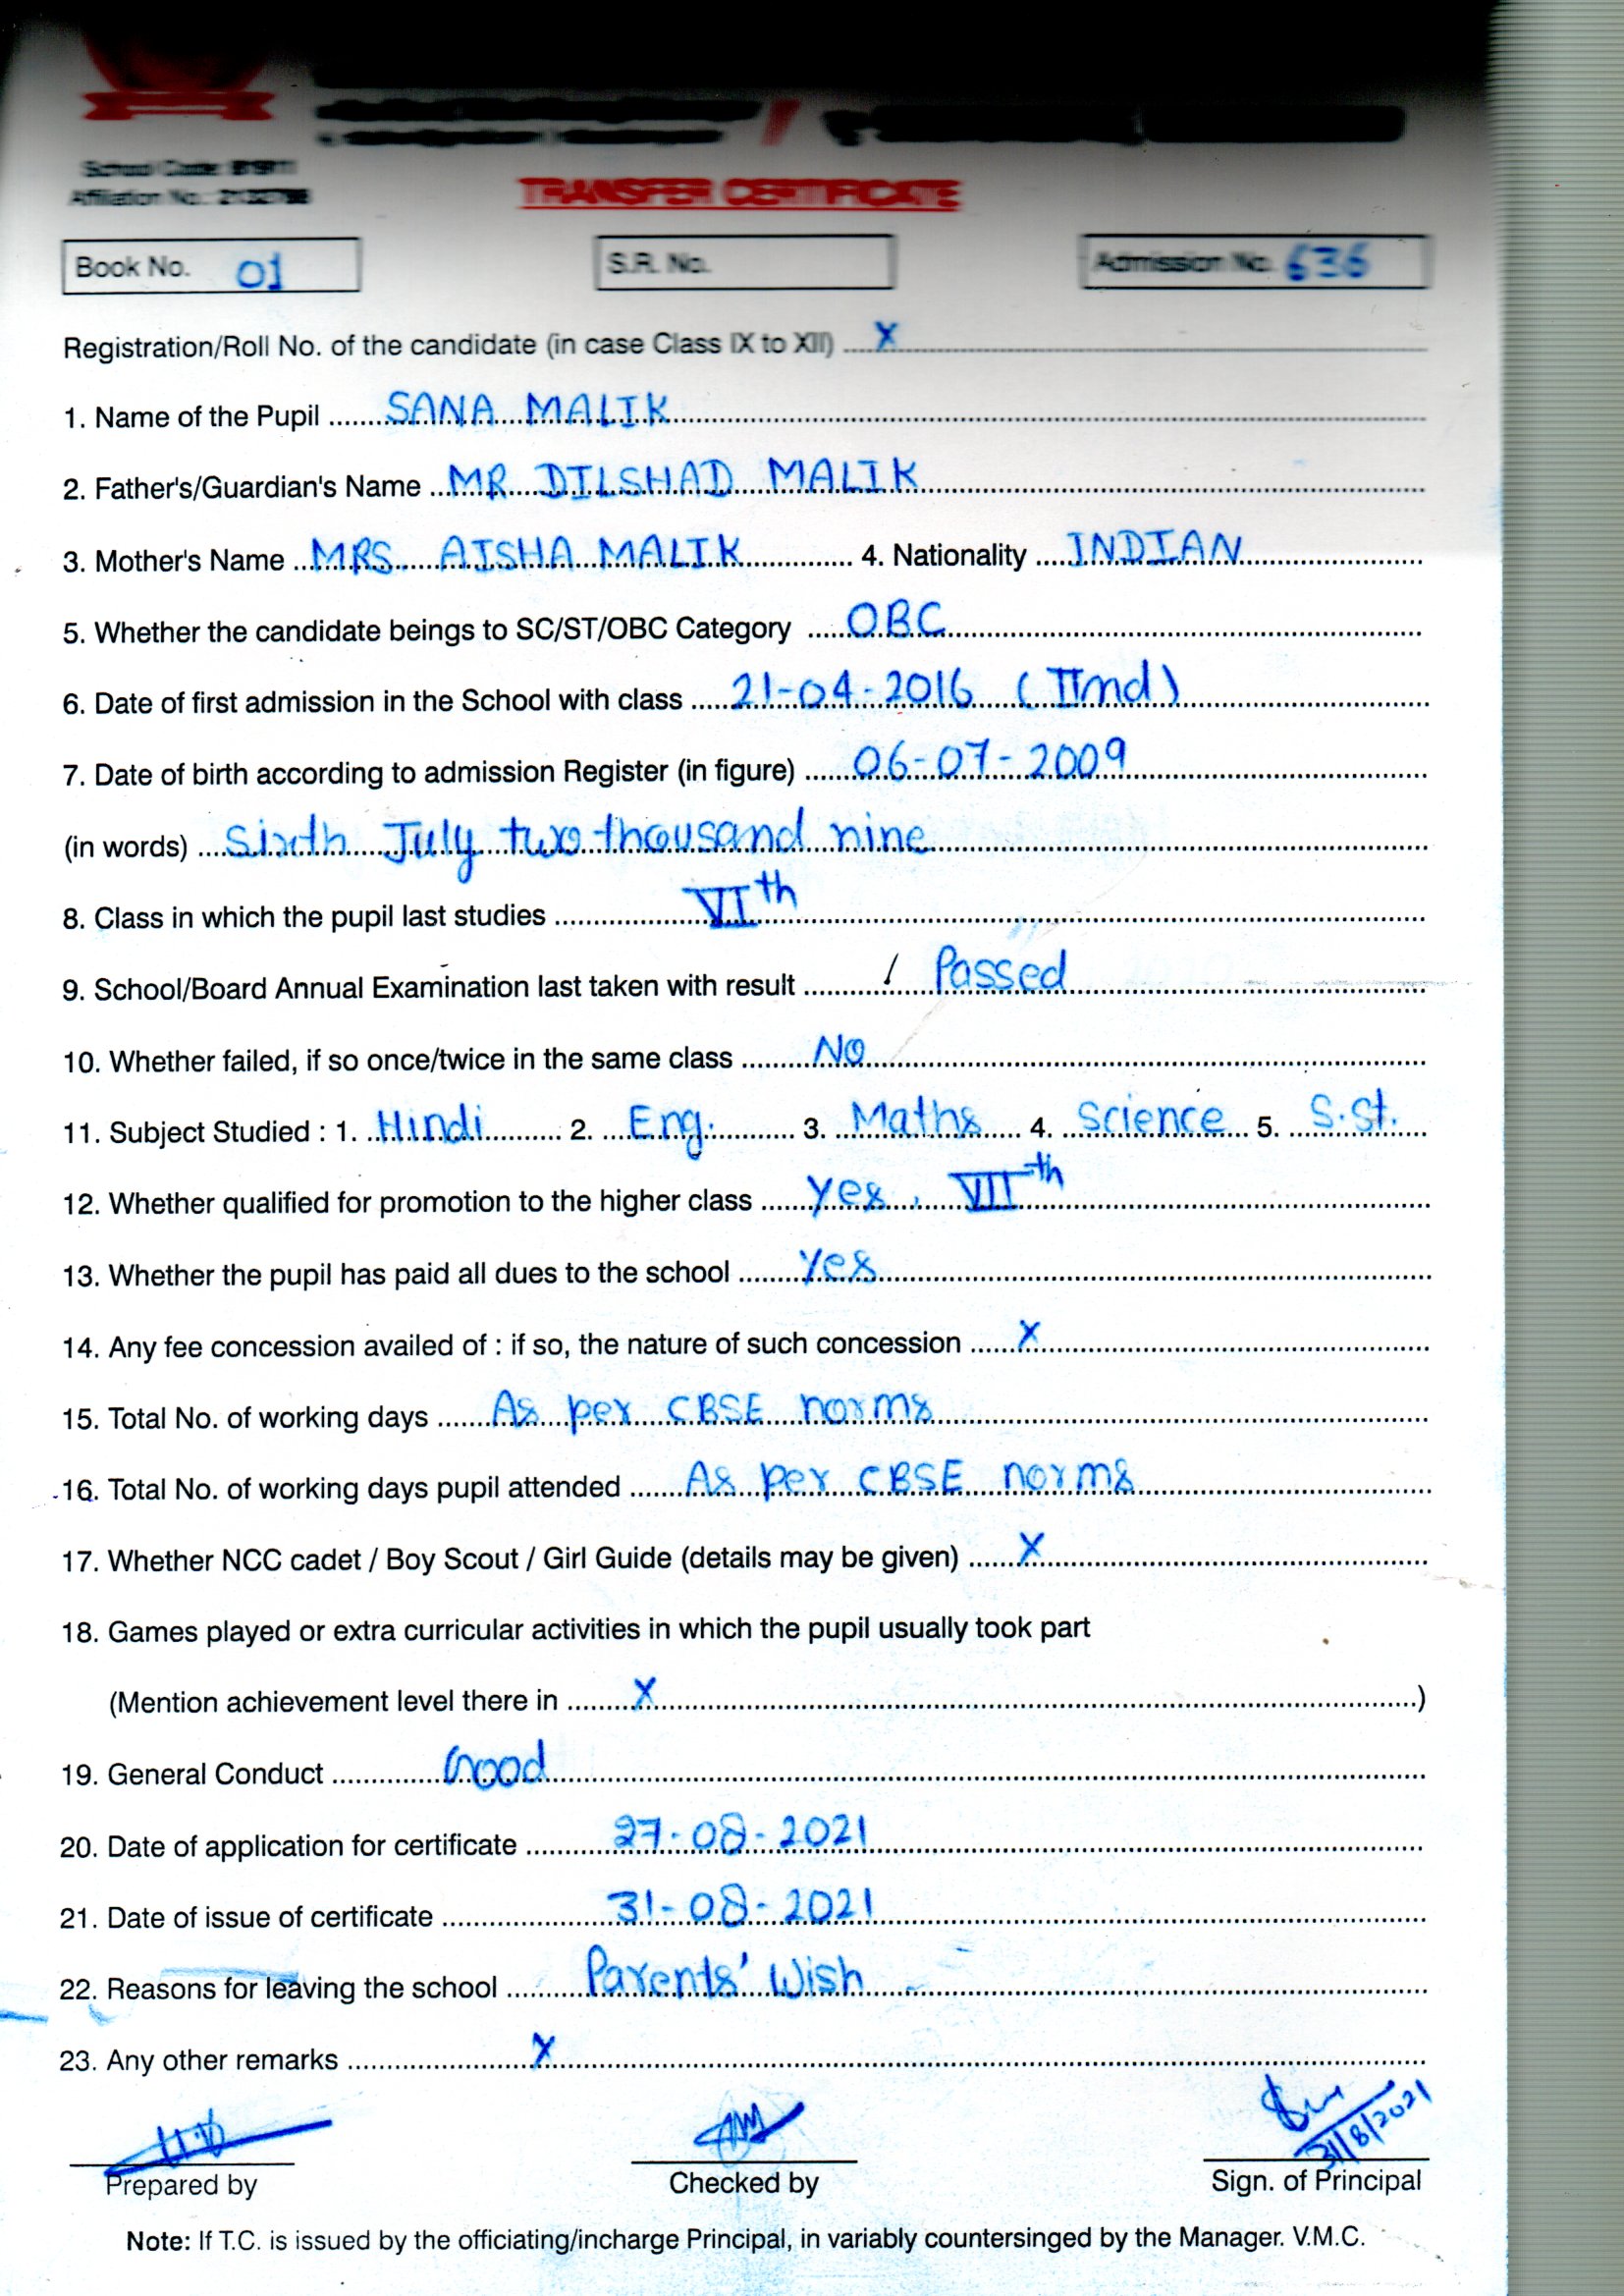 School Code: 81911
Affiliation No.: 2132798
TRANSFER CERTIFICATE
Book No. 01 S.R. No. Admission No. 636
Registration/Roll No. of the candidate (in case Class IX to XII) X
1. Name of the Pupil SANA MALIK
2. Father's/Guardian's Name MR DILSHAD MALIK
3. Mother's Name MRS. AISHA MALIK 4. Nationality INDIAN
5. Whether the candidate beings to SC/ST/OBC Category OBC
6. Date of first admission in the School with class 21-04-2016 (IInd)
7. Date of birth according to admission Register (in figure) 06-07-2009
(in words) Sixth July two thousand nine
8. Class in which the pupil last studies VIth
9. School/Board Annual Examination last taken with result / Passed
10. Whether failed, if so once/twice in the same class No
11. Subject Studied : 1. Hindi 2. Eng. 3. Maths 4. Science 5. S.St.
12. Whether qualified for promotion to the higher class yes, VIIth
13. Whether the pupil has paid all dues to the school yes
14. Any fee concession availed of : if so, the nature of such concession X
15. Total No. of working days As per CBSE norms
16. Total No. of working days pupil attended As per CBSE norms
17. Whether NCC cadet / Boy Scout / Girl Guide (details may be given) X
18. Games played or extra curricular activities in which the pupil usually took part
(Mention achievement level there in X )
19. General Conduct Good
20. Date of application for certificate 27-08-2021
21. Date of issue of certificate 31-08-2021
22. Reasons for leaving the school Parents' Wish
23. Any other remarks X
31/8/2021
Prepared by Checked by Sign. of Principal
Note: If T.C. is issued by the officiating/incharge Principal, in variably countersinged by the Manager. V.M.C.